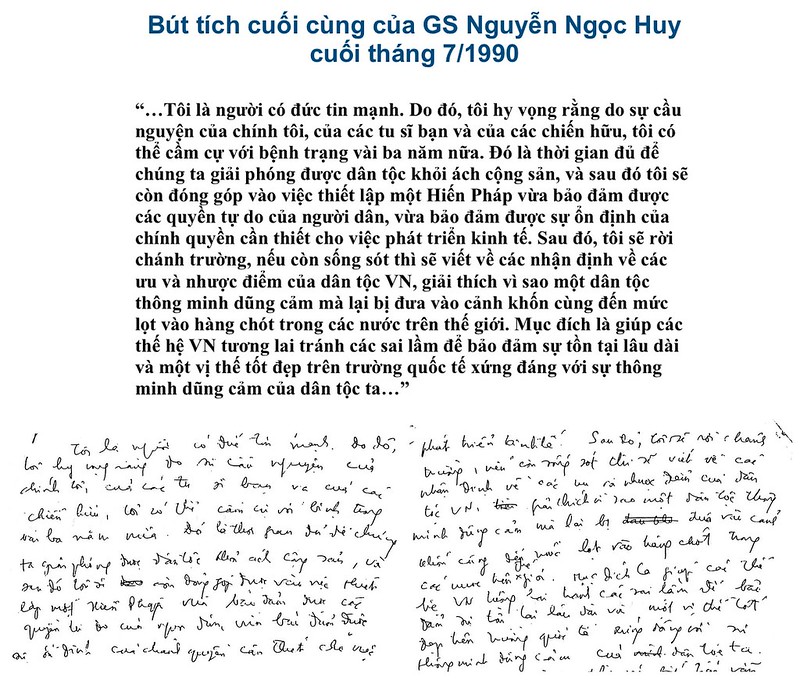 Bút tích cuối cùng của GS Nguyễn Ngọc Huy
cuối tháng 7/1990
“…Tôi là người có đức tin mạnh. Do đó, tôi hy vọng rằng do sự cầu
nguyện của chính tôi, của các tu sĩ bạn và của các chiến hữu, tôi có
thể cầm cự với bệnh trạng vài ba năm nữa. Đó là thời gian đủ để
chúng ta giải phóng được dân tộc khỏi ách cộng sản, và sau đó tôi sẽ
còn đóng góp vào việc thiết lập một Hiến Pháp vừa bảo đảm được
các quyền tự do của người dân, vừa bảo đảm được sự ổn định của
chính quyền cần thiết cho việc phát triển kinh tế. Sau đó, tôi sẽ rời
chánh trường, nếu còn sống sót thì sẽ viết về các nhận định về các
ưu và nhược điểm của dân tộc VN, giải thích vì sao một dân tộc
thông minh dũng cảm mà lại bị đưa vào cảnh khốn cùng đến mức
lọt vào hàng chót trong các nước trên thế giới. Mục đích là giúp các
thế hệ VN tương lai tránh các sai lầm để bảo đảm sự tồn tại lâu dài
và một vị thế tốt đẹp trên trường quốc tế xứng đáng với sự thông
minh dũng cảm của dân tộc ta…”
Tôi là người có đức tin mạnh. Do đó,
tôi hy vọng rằng do sự cầu nguyện của
chính tôi, của các tu sĩ bạn và của các
chiến hữu, tôi có thể cầm cự với bệnh trạng
vài ba năm nữa. Đó là thời gian đủ để chúng
ta giải phóng được dân tộc khỏi ách cộng sản, và
sau đó tôi sẽ còn đóng góp được vào việc thiết
lập một Hiến Pháp vừa bảo đảm được các
quyền tự do của người dân, vừa bảo đảm được
sự ổn định của chánh quyền cần thiết cho việc
phát triển kinh tế. Sau đó, tôi sẽ rời chánh
trường, nếu còn sống sót thì sẽ viết về các
nhận định về các ưu và nhược điểm của dân
tộc VN, giải thích vì sao một dân tộc thông
minh dũng cảm mà lại bị đưa vào cảnh
khốn cùng đến mức lọt vào hàng chót trong
các nước trên thế giới. Mục đích là giúp các thế
hệ VN tương lai tránh các sai lầm để bảo
đảm sự tồn tại lâu dài và một vị thế tốt
đẹp trên trường quốc tế xứng đáng với sự
thông minh dũng cảm của dân tộc ta.